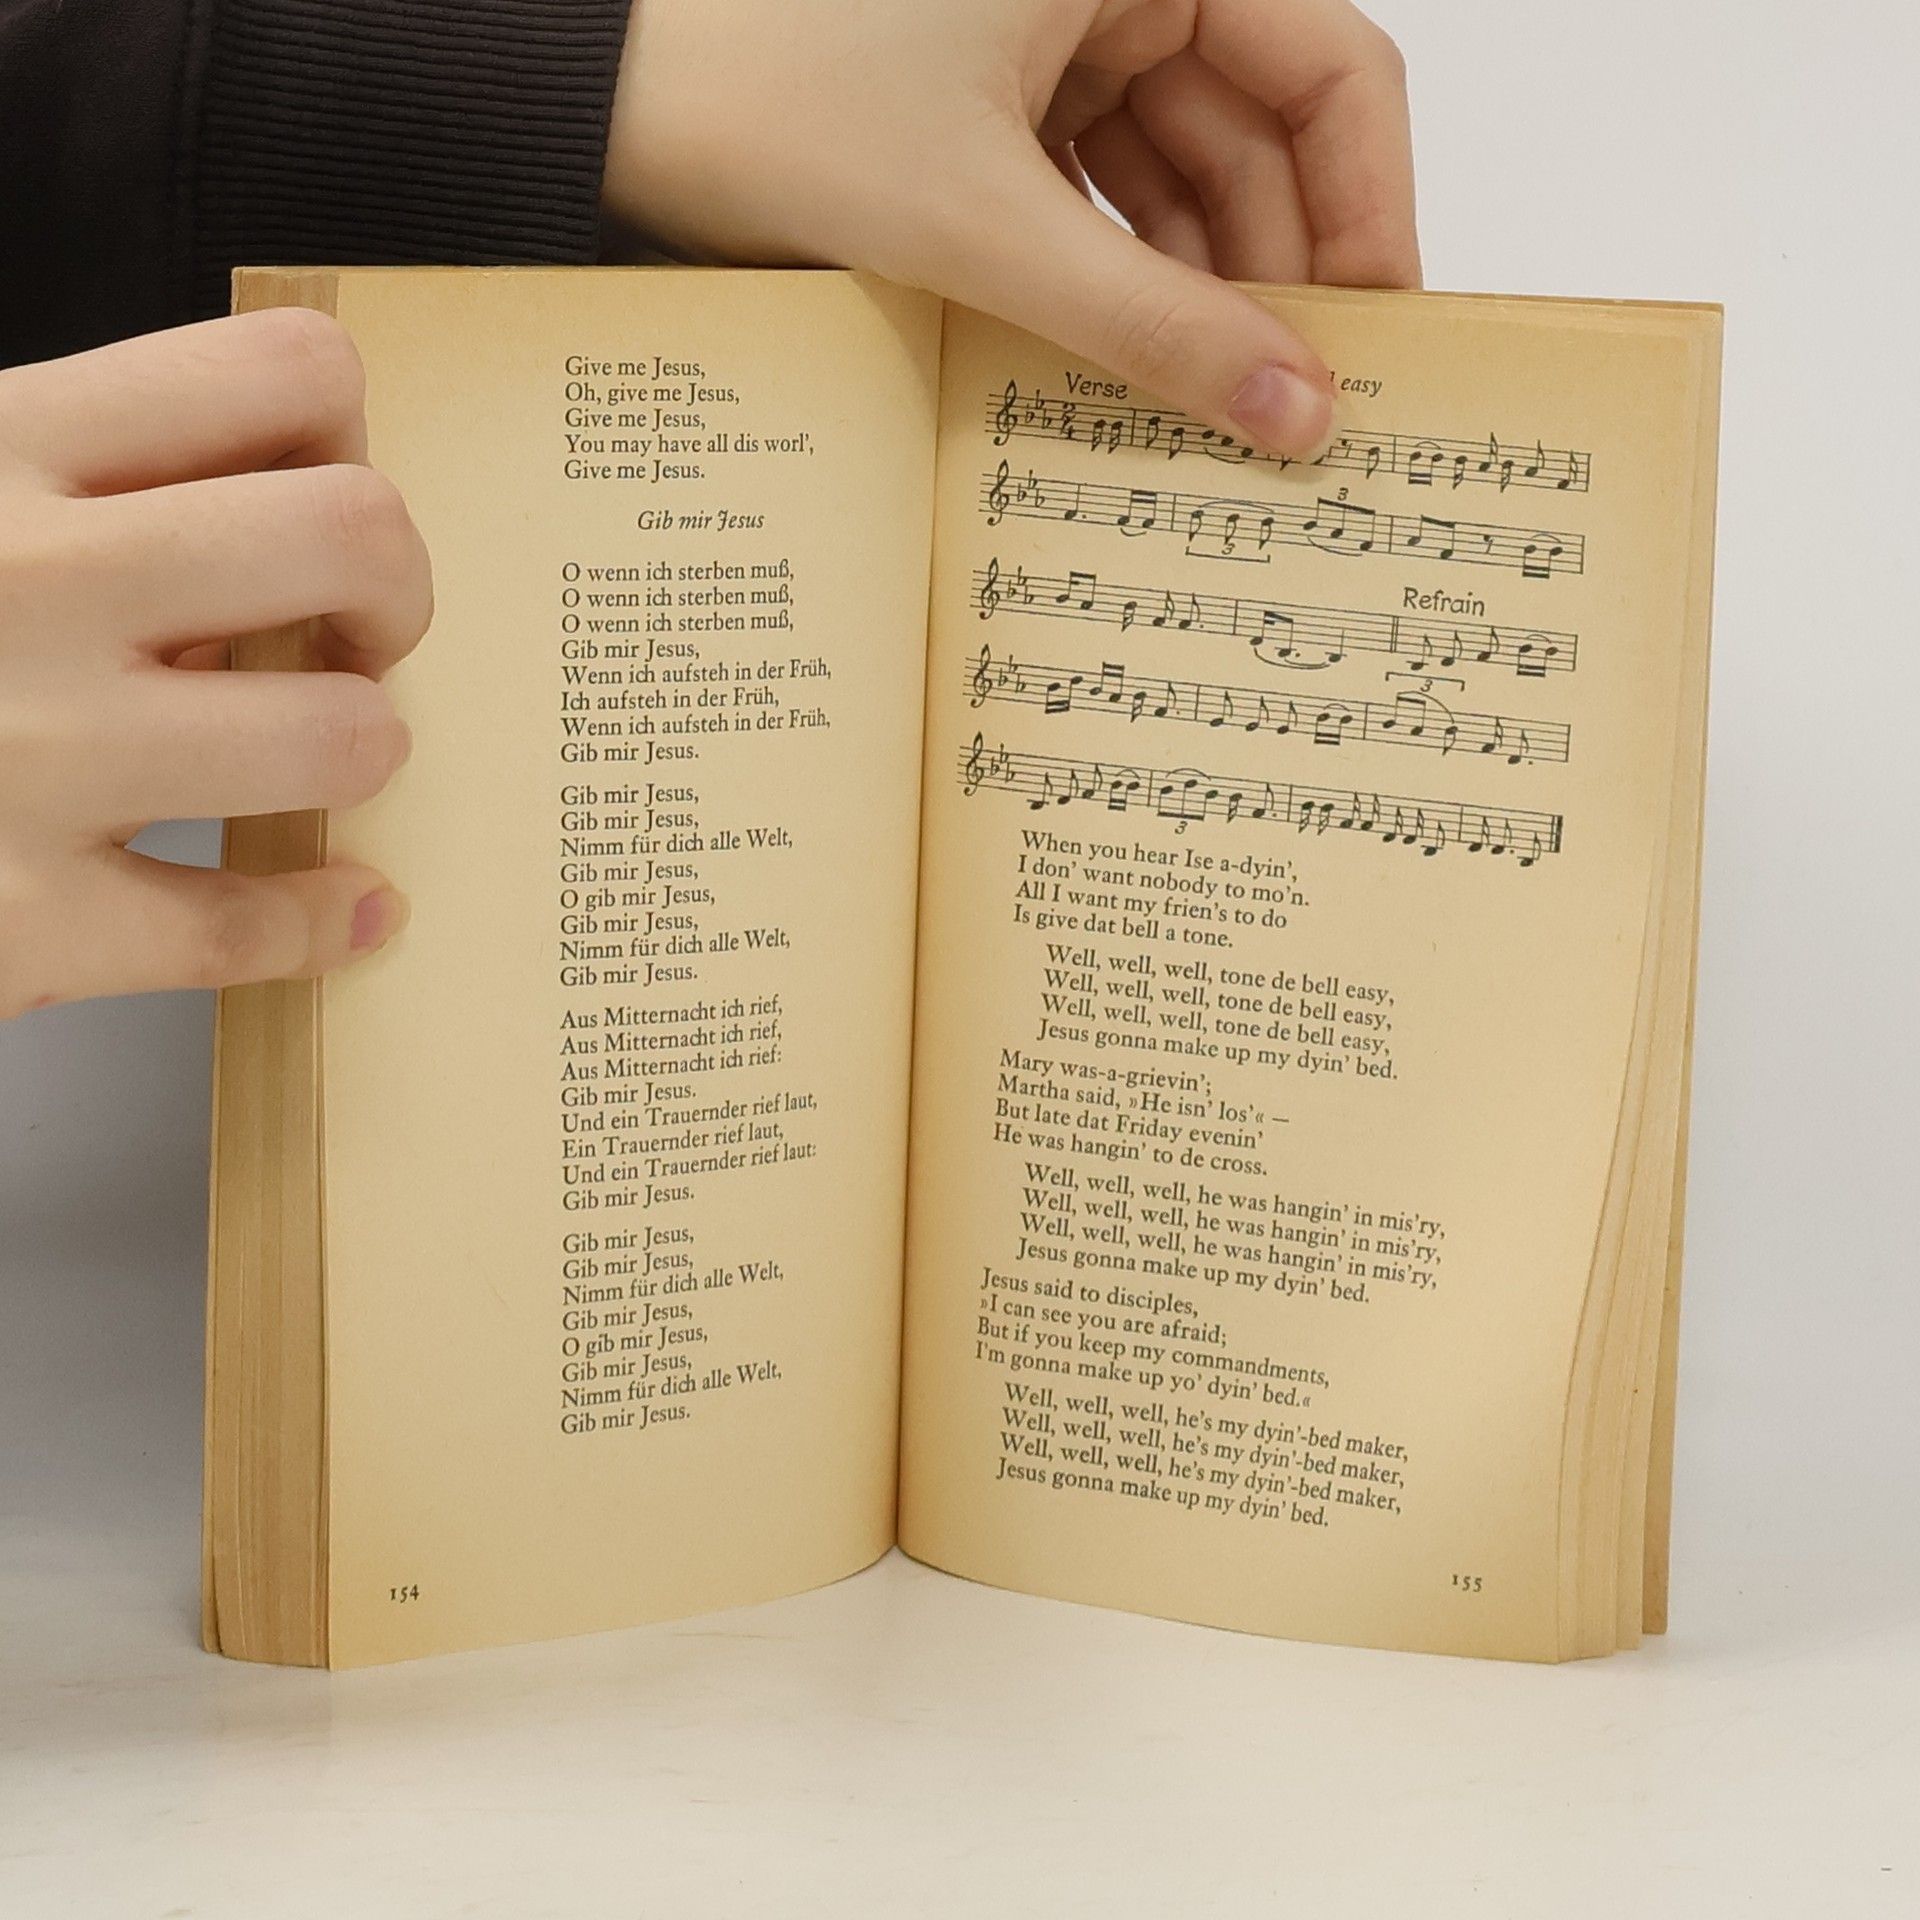 Give me Jesus,
Oh, give me Jesus,
Give me Jesus,
You may have all dis worl',
Give me Jesus.
Gib mir Jesus
O wenn ich sterben muß,
O wenn ich sterben muß,
O wenn ich sterben muß,
Gib mir Jesus,
Wenn ich aufsteh in der Früh,
Ich aufsteh in der Früh,
Wenn ich aufsteh in der Früh,
Gib mir Jesus.
Gib mir Jesus,
Gib mir Jesus,
Nimm für dich alle Welt,
Gib mir Jesus,
O gib mir Jesus,
Gib mir Jesus,
Nimm für dich alle Welt,
Gib mir Jesus.
Aus Mitternacht ich rief,
Aus Mitternacht ich rief,
Aus Mitternacht ich rief:
Gib mir Jesus.
Und ein Trauernder rief laut,
Ein Trauernder rief laut,
Und ein Trauernder rief laut:
Gib mir Jesus.
Gib mir Jesus,
Gib mir Jesus,
Nimm für dich alle Welt,
Gib mir Jesus,
O gib mir Jesus,
Gib mir Jesus,
Nimm für dich alle Welt,
Gib mir Jesus.
154
easy
Verse
2
4
3
3
Refrain
3
3
When you hear Ise a-dyin',
I don' want nobody to mo'n.
All I want my frien's to do
Is give dat bell a tone.
Well, well, well, tone de bell easy,
Well, well, well, tone de bell easy,
Well, well, well, tone de bell easy,
Jesus gonna make up my dyin' bed.
Mary was-a-grievin';
Martha said, »He isn' los'« —
But late dat Friday evenin'
He was hangin' to de cross.
Well, well, well, he was hangin' in mis'ry,
Well, well, well, he was hangin' in mis'ry,
Well, well, well, he was hangin' in mis'ry,
Jesus gonna make up my dyin' bed.
Jesus said to disciples,
»I can see you are afraid;
But if you keep my commandments,
I'm gonna make up yo' dyin' bed.«
Well, well, well, he's my dyin'-bed maker,
Well, well, well, he's my dyin'-bed maker,
Well, well, well, he's my dyin'-bed maker,
Jesus gonna make up my dyin' bed.
155